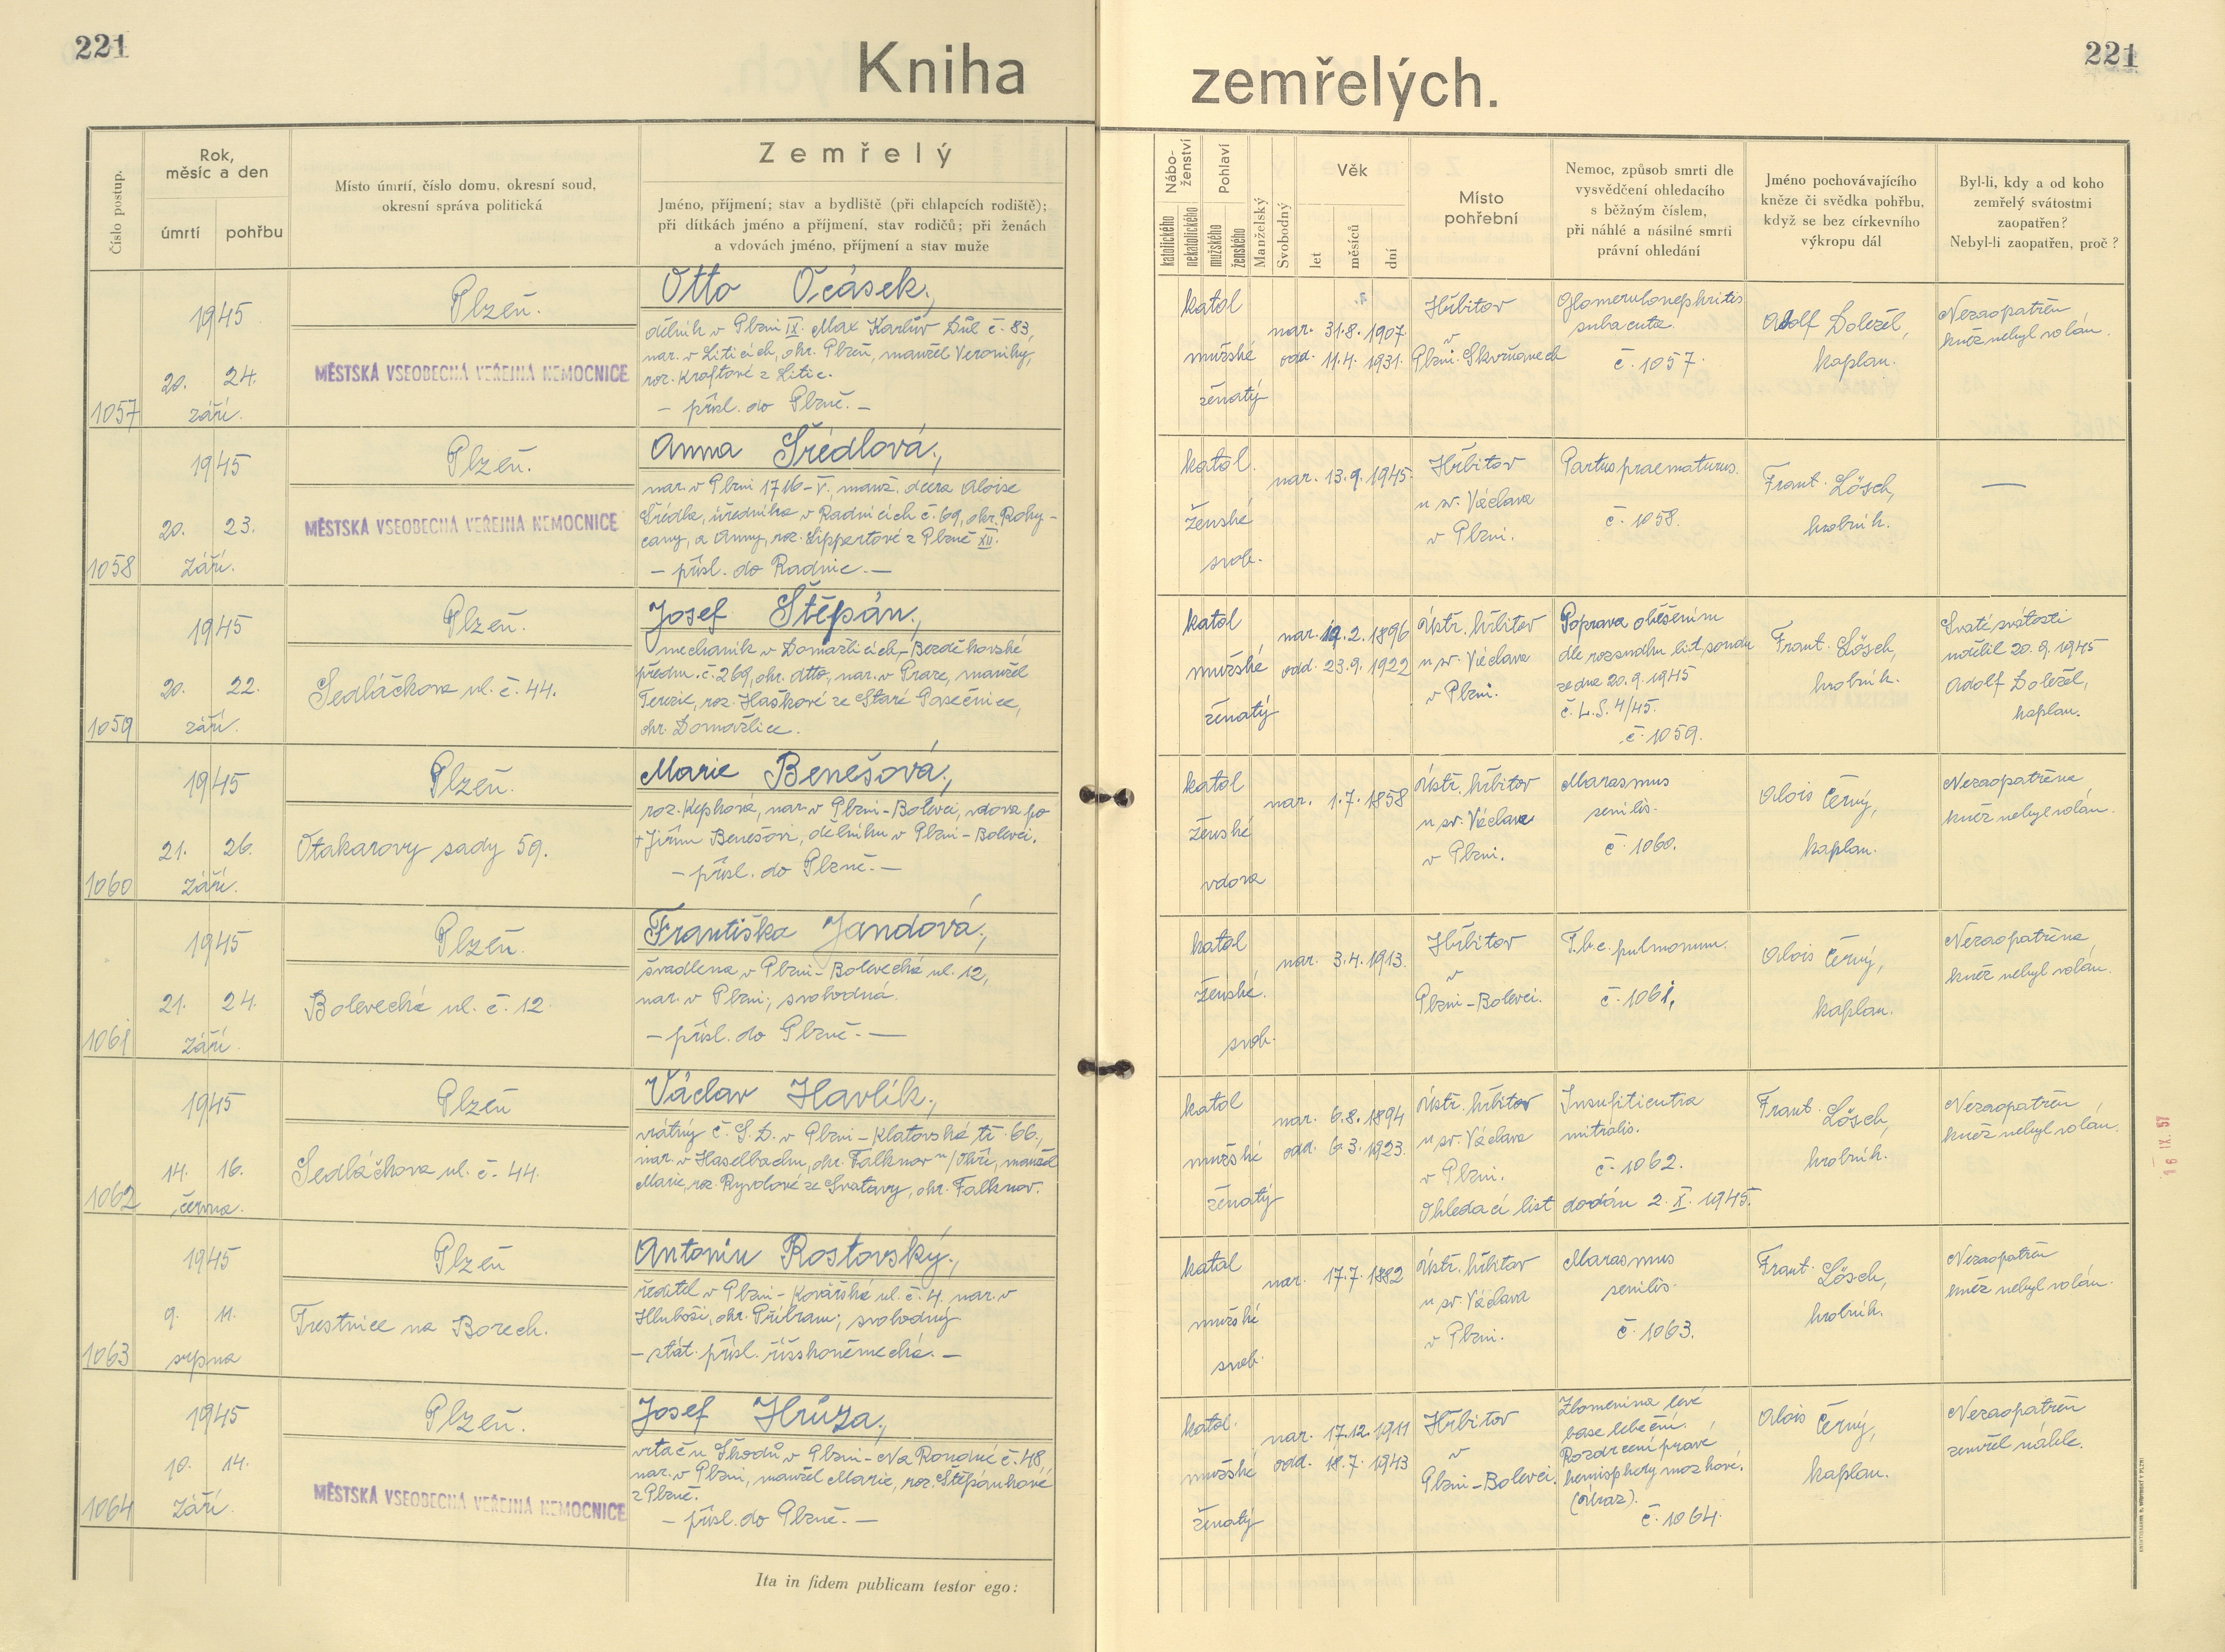 221
Kniha
zemřelých.
221
Číslo postup.
Rok,
měsíc a den
úmrtí
pohřbu
Místo úmrtí, číslo domu, okresní soud,
okresní správa politická
Zemřelý
Jméno, příjmení; stav a bydliště (při chlapcích rodiště);
při dítkách jméno a příjmení, stav rodičů; při ženách
a vdovách jméno, příjmení a stav muže
Nábo-
ženství
katolického
nekatolického
Pohlaví
mužského
ženského
Manželský
Svobodný
Věk
let
měsíců
dní
Místo
pohřební
Nemoc, způsob smrti dle
vysvědčení ohledacího
s běžným číslem,
při náhlé a násilné smrti
právní ohledání
Jméno pochovávajícího
kněze či svědka pohřbu,
když se bez církevního
výkropu dál
Byl-li, kdy a od koho
zemřelý svátostmi
zaopatřen?
Nebyl-li zaopatřen, proč?
1057
1945
20. 24.
září.
Plzeň.
MĚSTSKÁ VŠEOBECNÁ VEŘEJNÁ NEMOCNICE
Otto Ocásek.,
dělník v Plzni IX. Max Karlův Důl č. 83,
nar. v Liticích, okr. Plzeň, manžel Veroniky,
roz. Kraftové z Litic.
– přísl. do Plzně. –
katol
mužské
ženatý
nar. 31.8. 1907
odd. 11.4. 1931.
Hřbitov
v
Plzni-Skvrňanech
Glomerulonephritis
subacuta.
č. 1057.
Adolf Doležel,
kaplan.
Nezaopatřen
kněz nebyl volán.
1058
1945
20. 23.
září.
Plzeň.
MĚSTSKÁ VŠEOBECNÁ VEŘEJNÁ NEMOCNICE
Anna Šrédlová.,
nar. v Plzni 1716-V., manž. dcera Aloise
Šrédla, úředníka v Radnicích č. 69, okr. Roky-
cany, a Anny, roz. Lippertové z Plzně XII.
– přísl. do Radnic. –
katol.
ženské
svob.
nar. 13.9. 1945.
Hřbitov
u sv. Václava
v Plzni.
Partus praematurus.
č. 1058.
Frant. Lösch,
hrobník.
—
1059
1945
20. 22.
září.
Plzeň.
Sedláčkova ul. č. 44.
Josef Štěpán.,
mechanik v Domažlicích, Bezděkovské
předm. č. 269, okr. dtto, nar. v Praze, manžel
Terezie, roz. Haškové ze Staré Pasečnice,
okr. Domažlice.
katol
mužské
ženatý
nar. 19.2. 1896
odd. 23.9. 1922
Ústř. hřbitov
u sv. Václava
v Plzni.
Poprava oběšením
dle rozsudku lid. soudu
ze dne 20.9.1945
č. L.S. 4/45.
č. 1059.
Frant. Lösch,
hrobník.
Svaté svátosti
udělil 20.9.1945
Adolf Doležel,
kaplan.
1060
1945
21. 26.
září.
Plzeň.
Otakarovy sady 59.
Marie Benešová.,
roz. Kepková, nar. v Plzni-Bolevci, vdova po
+ Jiřím Benešovi, dělníku v Plzni-Bolevci.
– přísl. do Plzně. –
katol
ženské
vdova
nar. 1.7. 1858
Ústř. hřbitov
u sv. Václava
v Plzni.
Marasmus
senilis.
č. 1060.
Alois Černý,
kaplan.
Nezaopatřena
kněz nebyl volán.
1061
1945
21. 24.
září.
Plzeň.
Bolevecká ul. č. 12
Františka Jandová.,
švadlena v Plzni-Bolevecká ul. 12,
nar. v Plzni; svobodná.
– přísl. do Plzně. –
katol
ženské.
svob.
nar. 3.4. 1913.
Hřbitov
v
Plzni-Bolevci.
T.b.c. pulmonum.
č. 1061.
Alois Černý,
kaplan.
Nezaopatřena
kněz nebyl volán.
1062
1945
14. 16.
června.
Plzeň
Sedláčkova ul. č. 44.
Václav Havlík.,
vrátný Č.S.D. v Plzni-Klatovská tř. 66.,
nar. v Haselbachu, okr. Falknov n/Ohří, manžel
Marie, roz. Ryvolové ze Svatavy, okr. Falknov.
katol
mužské
ženatý
nar. 6.8. 1894
odd. 6.3. 1923.
Ústř. hřbitov
u sv. Václava
v Plzni.
Insuficientia
mitralis.
č. 1062.
Ohledací list dodán 2.X. 1945.
Frant. Lösch,
hrobník.
Nezaopatřen
kněz nebyl volán.
1063
1945
9. 11.
srpna
Plzeň
Trestnice na Borech.
Antonín Rostovský.,
ředitel v Plzni-Kovářská ul. č. 4. nar. v
Hluboši, okr. Příbram; svobodný
– stát. přísl. říšskoněmecká. –
katol
mužské
svob.
nar. 17.7. 1882
Ústř. hřbitov
u sv. Václava
v Plzni.
Marasmus
senilis.
č. 1063.
Frant. Lösch,
hrobník.
Nezaopatřen
kněz nebyl volán.
1064
1945
10. 14.
září.
Plzeň.
MĚSTSKÁ VŠEOBECNÁ VEŘEJNÁ NEMOCNICE
Josef Hrůza.,
vrtač u Škodů v Plzni-Na Roudné č. 48,
nar. v Plzni, manžel Marie, roz. Štěpánkové
z Plzně.
– přísl. do Plzně. –
katol.
mužské
ženatý
nar. 17.12. 1911
odd. 18.7. 1943
Hřbitov
v
Plzni-Bolevci.
Zlomenina levé
base lebeční.
Rozdrcení pravé
hemisphery mozkové.
(úraz).
č. 1064.
Alois Černý,
kaplan.
Nezaopatřen
zemřel náhle.
Ita in fidem publicam testor ego:
16 IX. 57